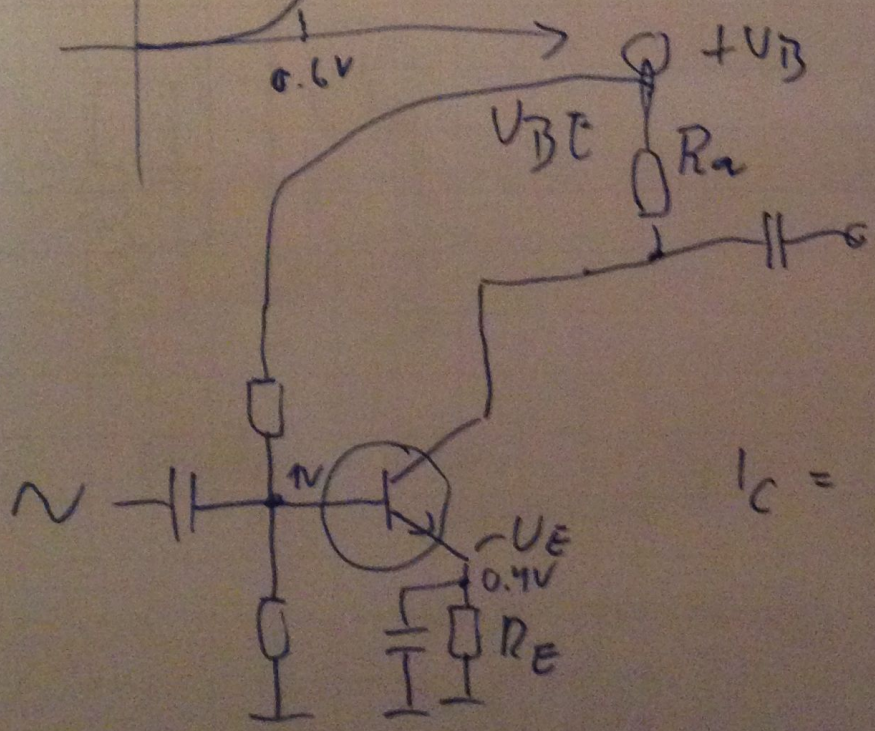 0.6V
+UB
UBE
Ra
1V
IC =
UE
0.4V
RE